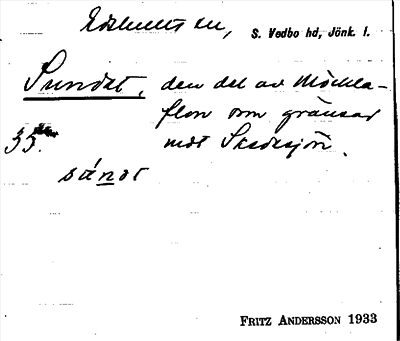 Edshults sn, S. Vedbo hd, Jönk. l.
Sundet, den del av Möckla-
flon som gränsar
35. mot Skedesjön.
sándt
FRITZ ANDERSSON 1933